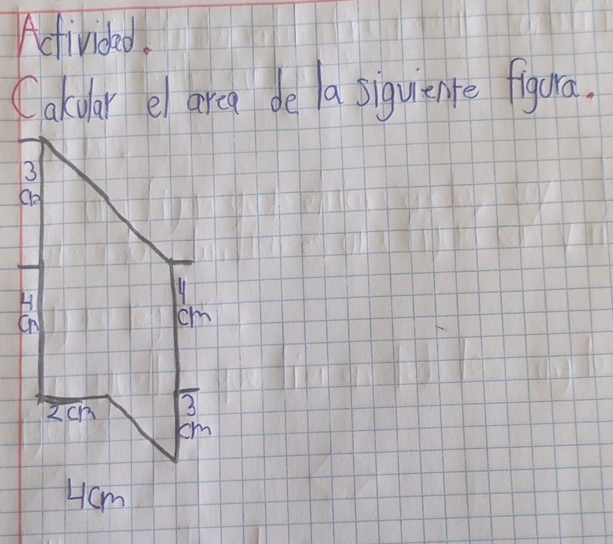 Actividad.
Cakular el area de la siguiente figura.
3
cm
4
cm
4
cm
2cm
3
cm
4cm